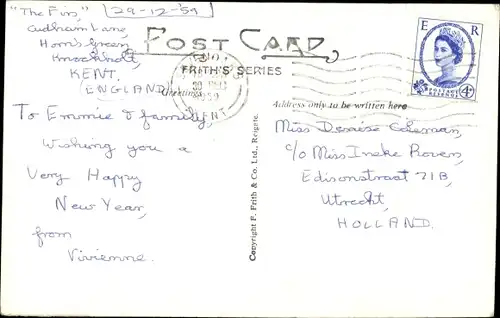 "The Firs", 29-12-59
Cudham Lane,
Horn's Green,
Knockholt,
KENT.
(ENGLAND)
To Emmie & family,
Wishing you a
Very Happy
New Year,
from
Vivienne.
POST CARD
FRITH'S SERIES
Greetings
Address only to be written here
Copyright F. Frith & Co. Ltd., Reigate.
E R
POSTAGE REVENUE
4D
Miss Denise Coleman,
c/o Miss Ineke Rovers,
Edisonstraat 71B,
Utrecht,
HOLLAND.